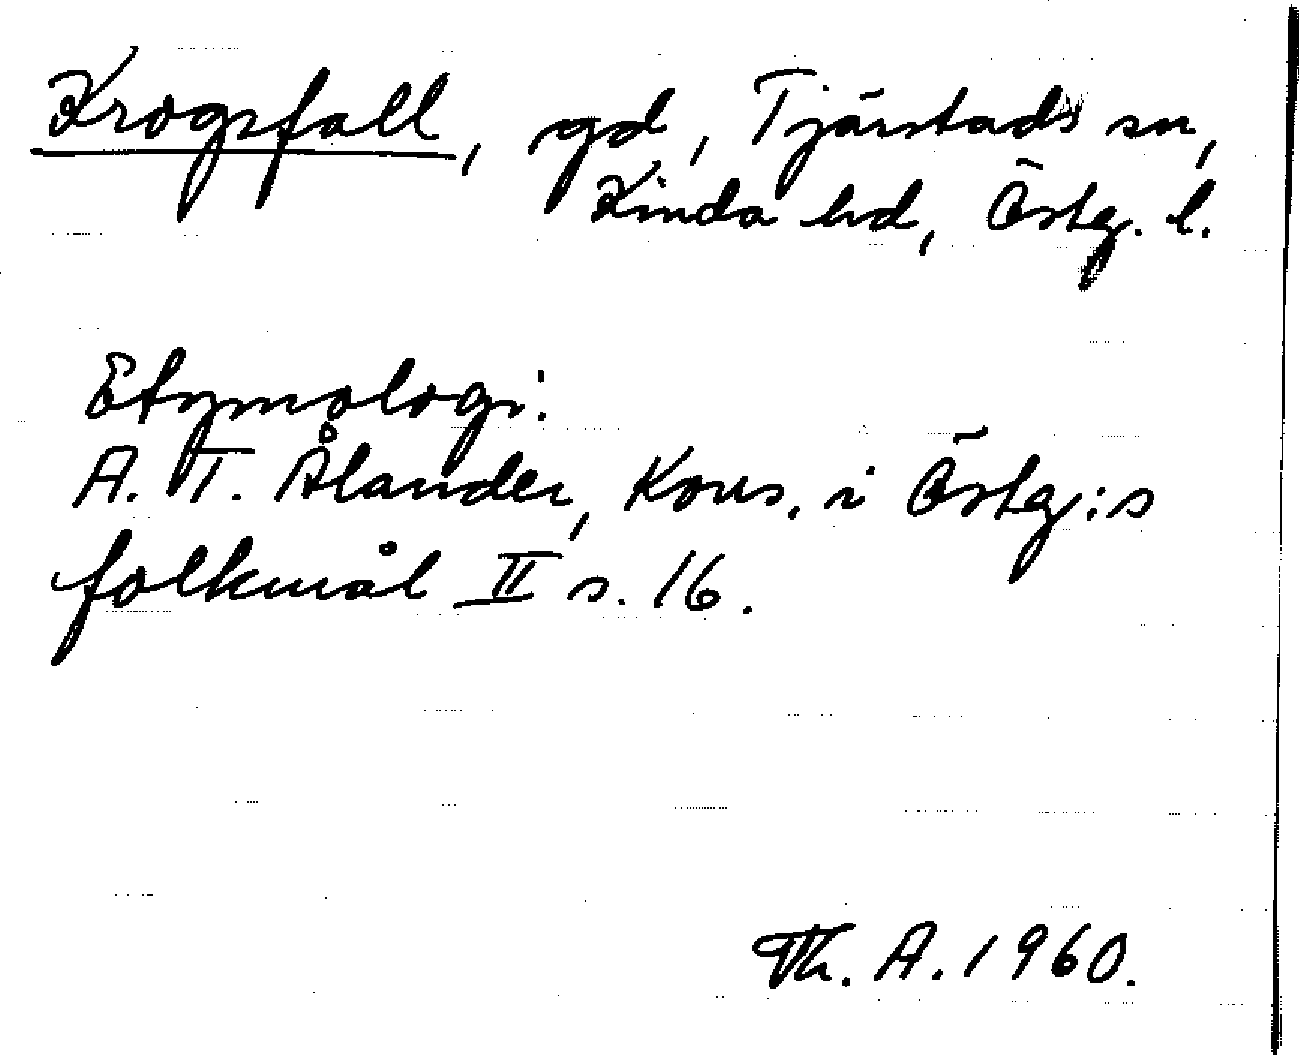 Krogsfall, gd, Tjärstads sn,
Kinda hd, Östg. l.
Etymologi:
A. T. Ålander, Kons. i Östg:s
folkmål II s. 16.
Th. A. 1960.